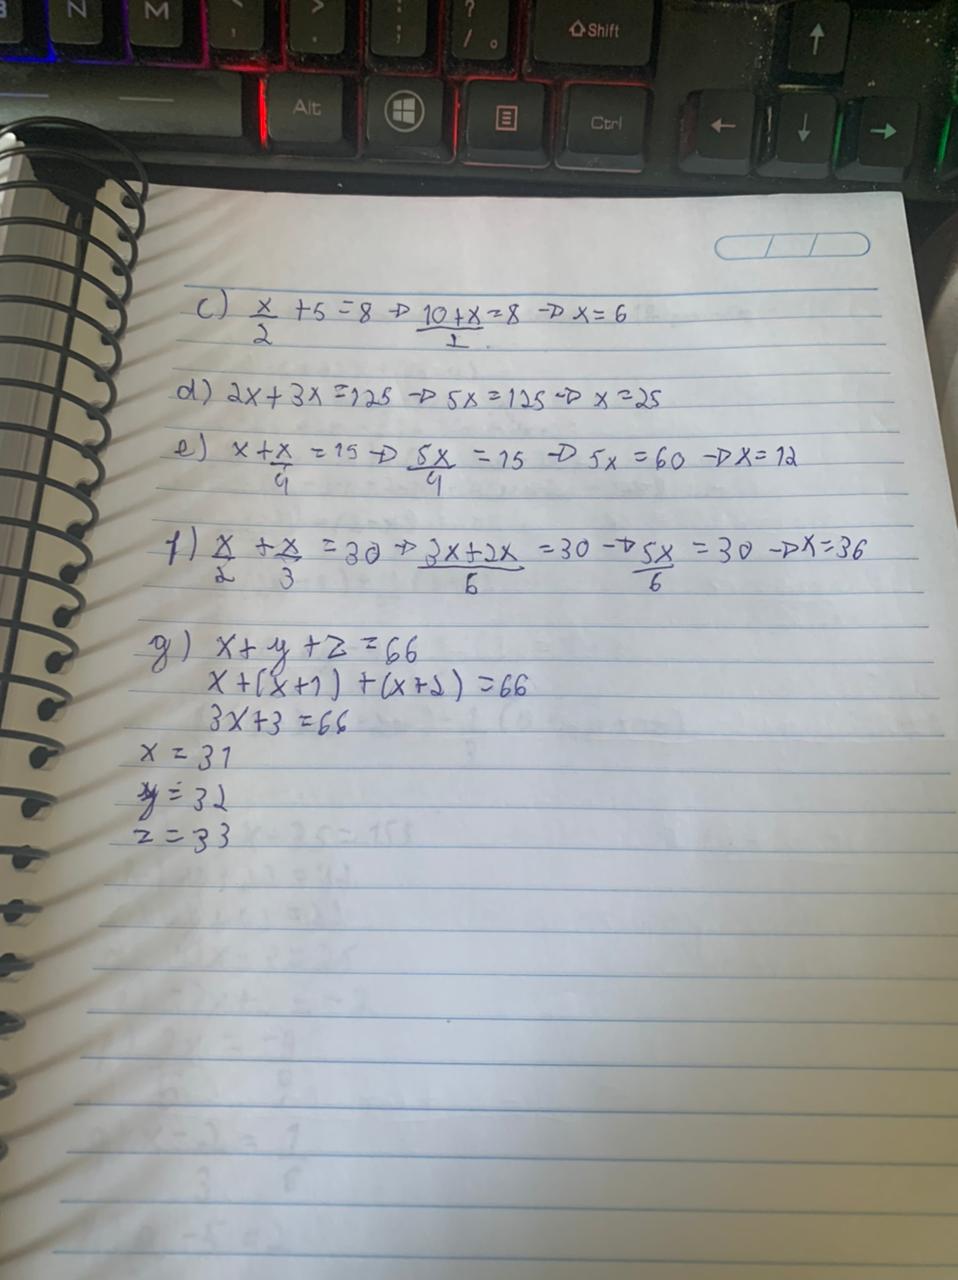 N M , < . > ; : / ? ° ⇧Shift ↑
Alt Ctrl ← ↓ →
c) x/2 +5 = 8 → 10+x/2 = 8 → x = 6
d) 2x + 3x = 125 → 5x = 125 → x = 25
e) x + x/4 = 15 → 5x/4 = 15 → 5x = 60 → x = 12
f) x/2 + x/3 = 30 → 3x+2x/6 = 30 → 5x/6 = 30 → x = 36
g) x + y + z = 66
x + (x+1) + (x+2) = 66
3x+3 = 66
x = 31
y = 32
z = 33